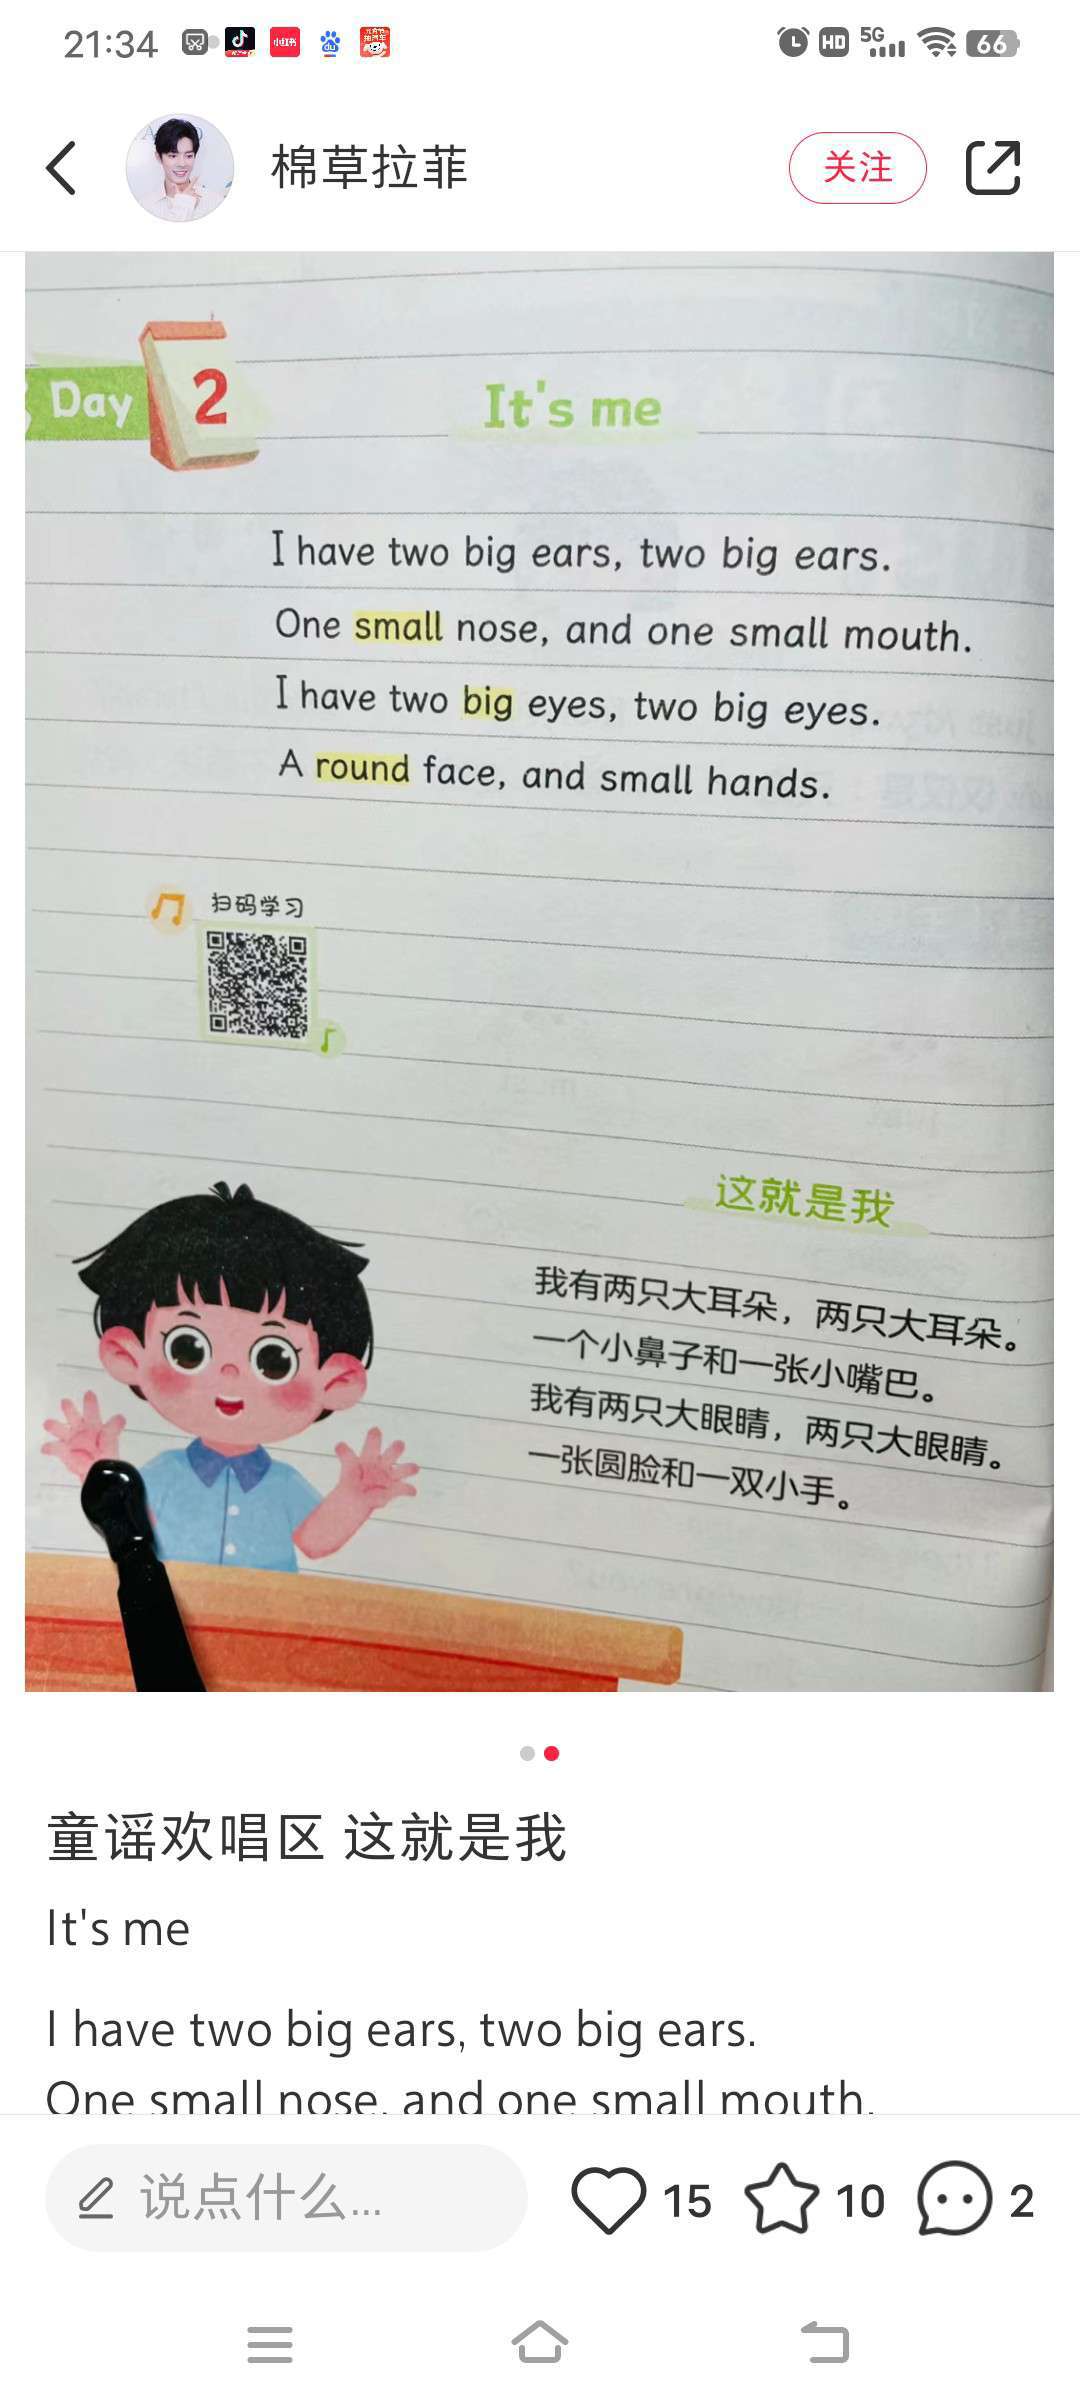 21:34
HD
5G
66
小红书
du
棉草拉菲
关注
Day 2
It's me
I have two big ears, two big ears.
One small nose, and one small mouth.
I have two big eyes, two big eyes.
A round face, and small hands.
扫码学习
这就是我
我有两只大耳朵，两只大耳朵。
一个小鼻子和一张小嘴巴。
我有两只大眼睛，两只大眼睛。
一张圆脸和一双小手。
童谣欢唱区 这就是我
It's me
I have two big ears, two big ears.
One small nose, and one small mouth.
说点什么...
15
10
2